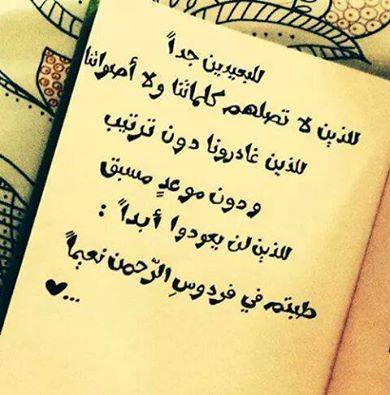 للبعيدين جداً
للذين لا تصلهم كلماتنا ولا أصواتنا
للذين غادرونا دون ترتيب
ودون موعدٍ مسبق
للذين لن يعودوا أبداً :
طبتم في فردوسِ الرّحمن نعيماً
...♥